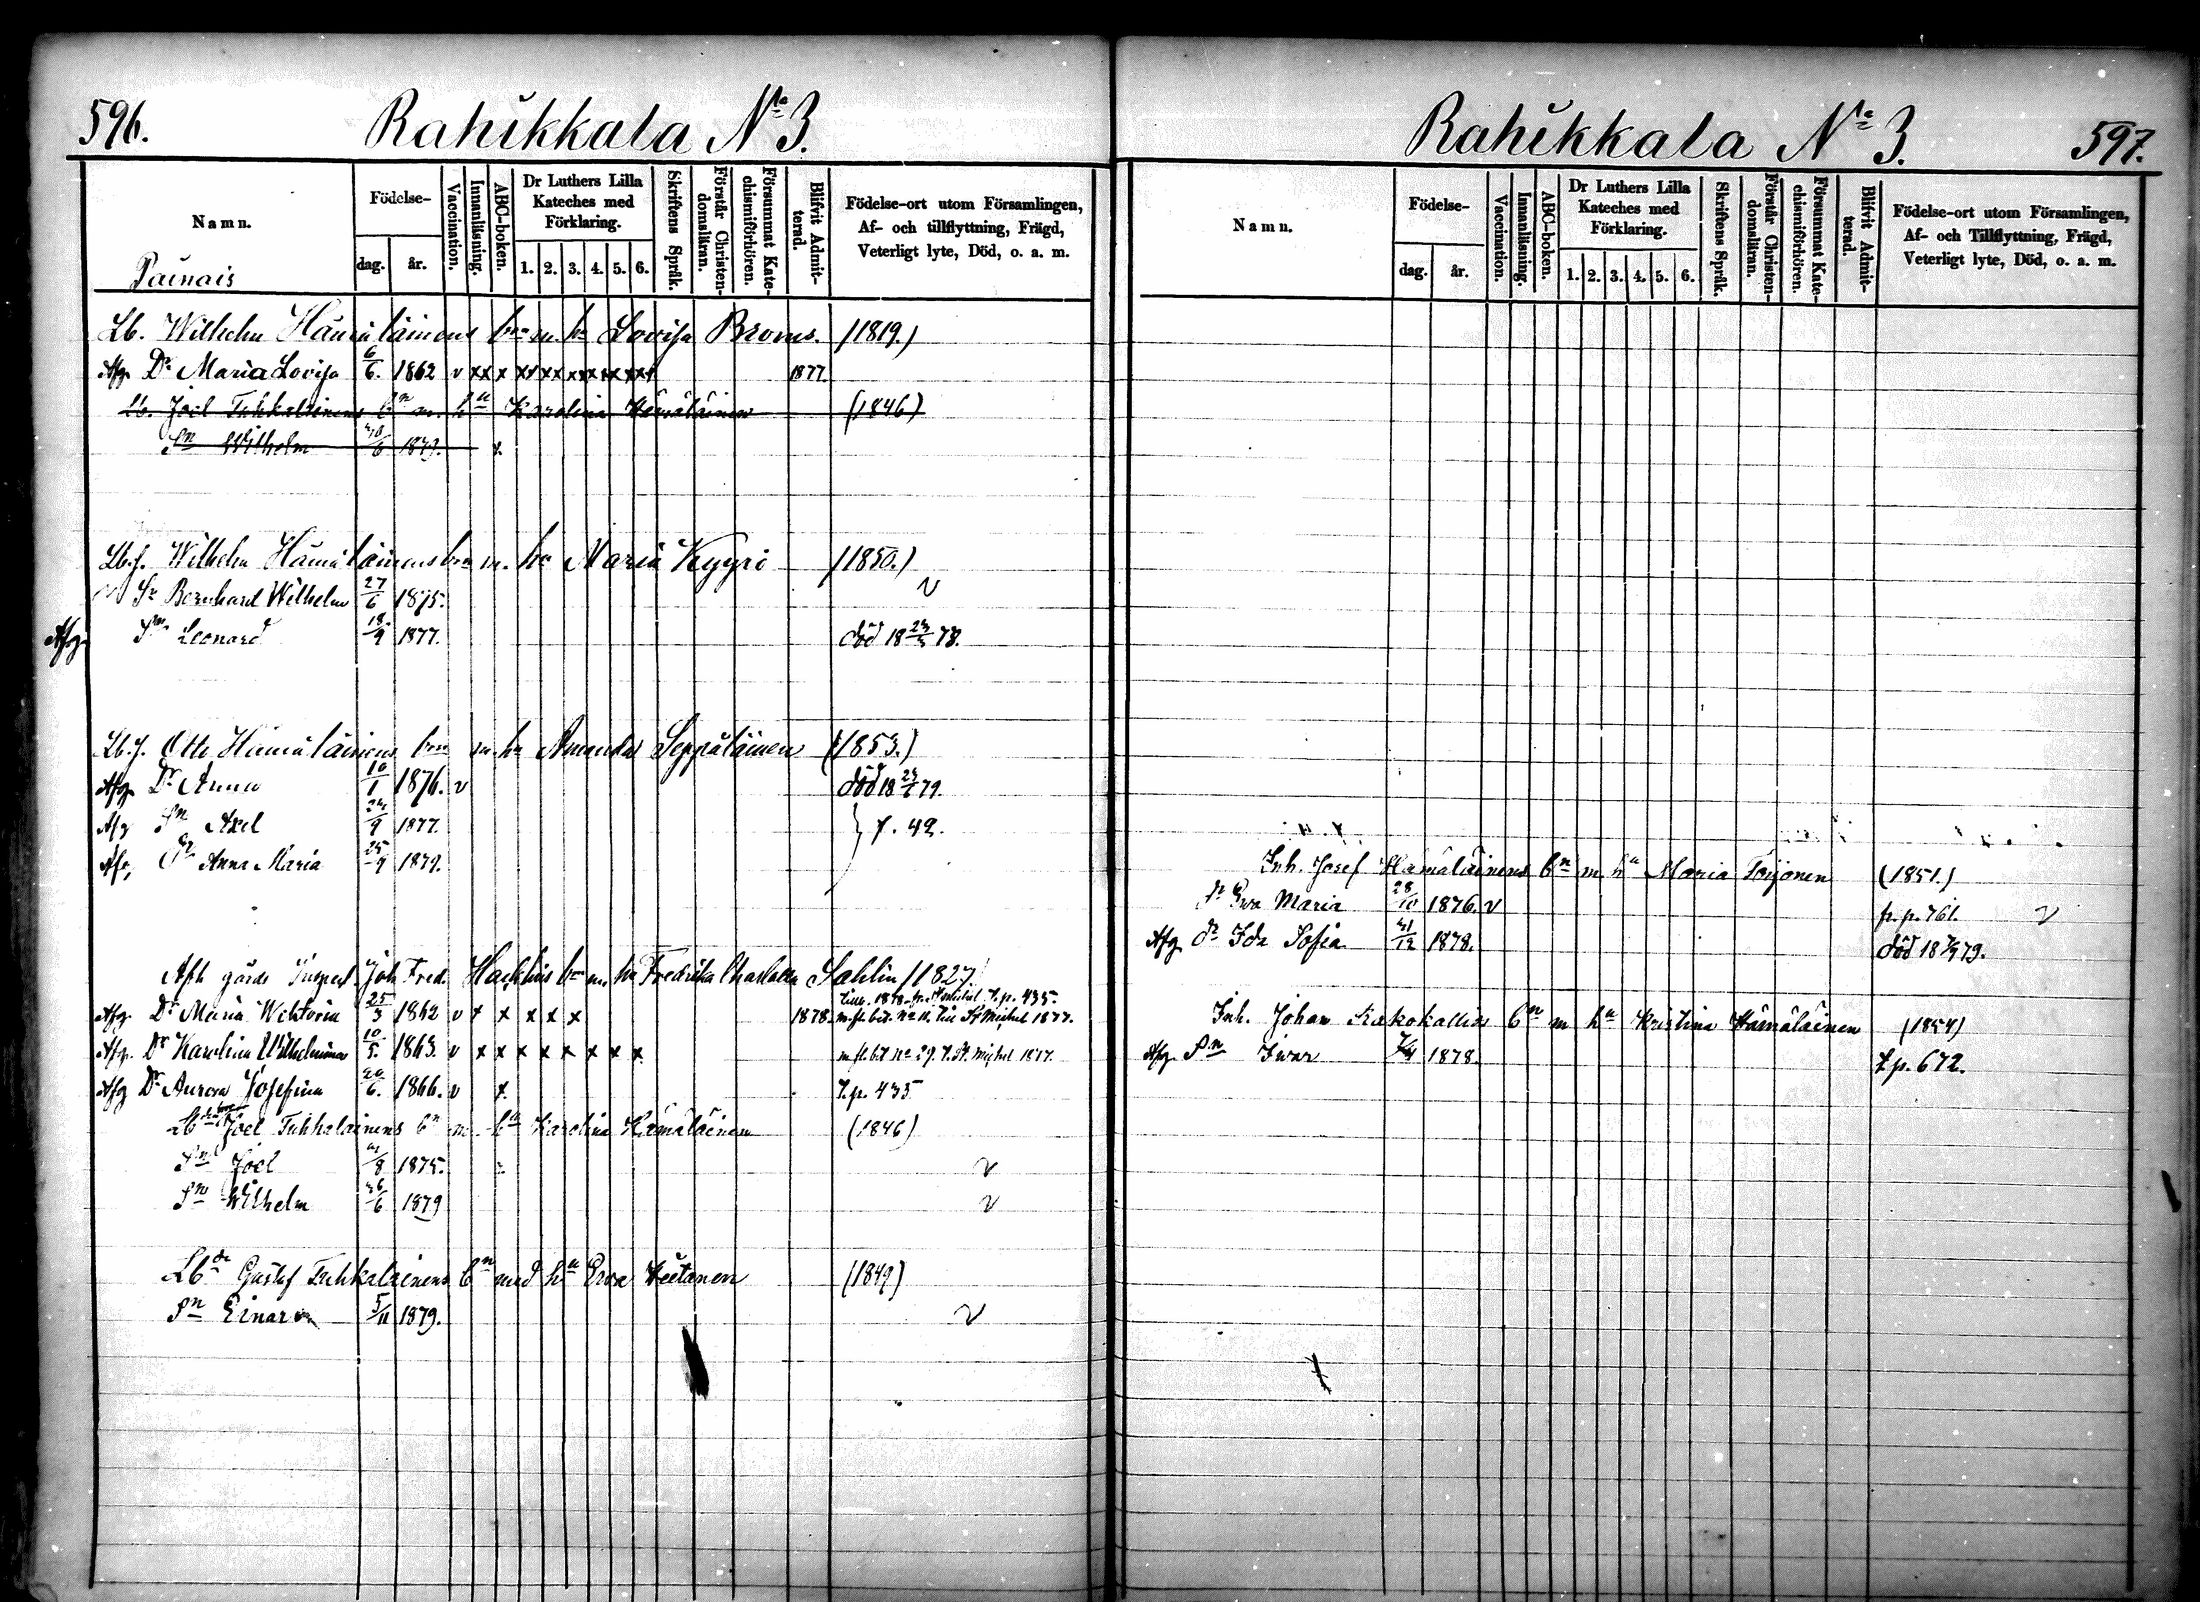 596. Rahikkala No 3.
Namn.
Födelse-
dag. år.
Vaccination.
Innanläsning.
ABC-boken.
Dr Luthers Lilla Kateches med Förklaring.
1. 2. 3. 4. 5. 6.
Skriftens Språk.
Förstår Christendomsläran.
Försummat Katechismiförhören.
Blifvit Admitterad.
Födelse-ort utom Församlingen, Af- och tillflyttning, Frägd, Veterligt lyte, Död, o. a. m.
Painais
Lb. Wilhelm Hämäläinens bn m. ha Lovisa Broms. (1819.)
Afg. Dr Maria Lovisa 6/6. 1862 v xx x xx xx xx xx xx xx 1877.
Lb. Joel Tuhkalainens bn m. ha Karolina Hämäläinen (1846)
Sn Wilhelm 1879. x
Lb.f. Wilhelm Hämäläinens bn m. ha Maria Kyyrö (1850.)
Sn Bernhard Wilhelm 27/6 1875. v
Afg. Sn Leonard 18/9 1877. död 18 78.
Lb.f. Otto Hämäläinens bn m. ha Amanda Seppäläinen (1853.)
Afg. Dr Anna 10/1 1876. v död 18 79.
Afg Sn Axel 24/9 1877. } t. 42.
Afg. Dr Anna Maria 25/9 1879.
Afsk gårds Inspect. Joh. Fred. Hacklins bn m. ha Fredrika Charlotta Sahlin (1827.)
Afg. Dr Maria Wiktoria 25/3 1862 v x x x x x 1878. m. fl. bet. No 11. till St Michel 1877.
Afg. Dr Karolina Wilhelmina 10/5. 1863. v x x x x x x x x m fl. bet No 29. t. St. Michel 1877.
Afg Dr Aurora Josefina 20/6. 1866. v x. t.p. 435
Joel Tuhkalainens bn m. ha Karolina Hämäläinen (1846)
Sn Joel 1875. v
Sn Wilhelm 1879 v
Lbde Gustaf Tuhkalainens bn med ha Eva (1849)
Sn Einar 5/11 1879. v
Rahikkala No 3. 597.
Namn.
Födelse-
dag. år.
Vaccination.
Innanläsning.
ABC-boken.
Dr Luthers Lilla Kateches med Förklaring.
1. 2. 3. 4. 5. 6.
Skriftens Språk.
Förstår Christendomsläran.
Försummat Katechismiförhören.
Blifvit Admitterad.
Födelse-ort utom Församlingen, Af- och Tillflyttning, Frägd, Veterligt lyte, Död, o. a. m.
Inh. Josef Hämäläinens bn m ha Maria Toijonen (1851.)
dr Eva Maria 28/10 1876. v fr. p. 761. v
Afg dr Ida Sofia 31/12 1878. död 18 79.
Inh. Johan Kukokallios bn m ha Kristina Hämäläinen (1854)
Afg Sn Iwar 1878. t.p. 672.